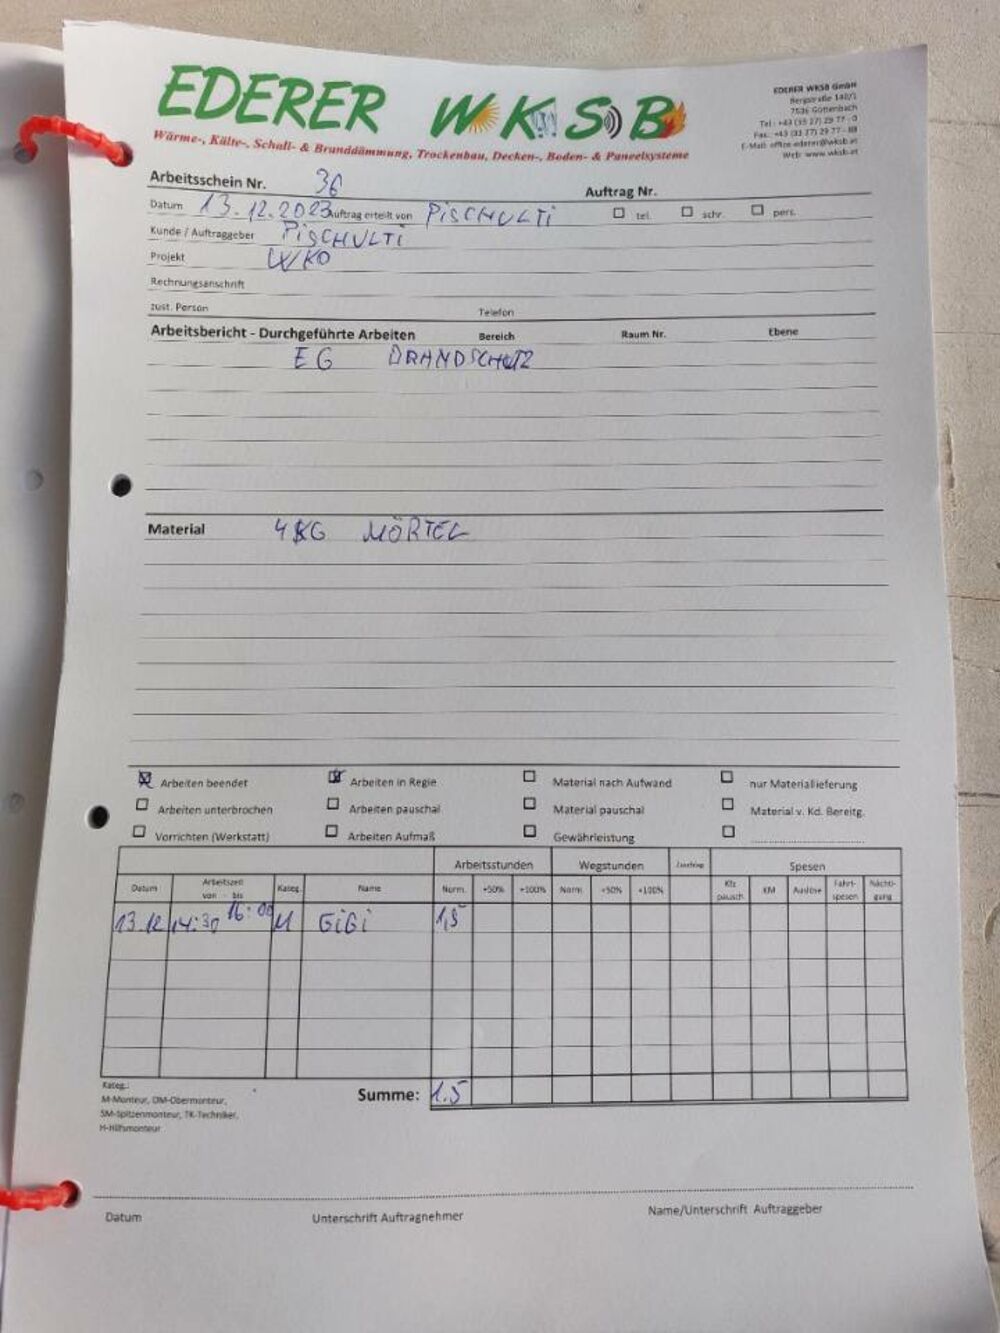 EDERER WKSB
EDERER WKSB GmbH
Bergstraße 140/1
7536 Güttenbach
Tel.: +43 (33 27) 29 77 - 0
Fax: +43 (33 27) 29 77 - 88
E-Mail: office-ederer@wksb.at
Web: www.wksb.at
Wärme-, Kälte-, Schall- & Branddämmung, Trockenbau, Decken-, Boden- & Paneelsysteme
Arbeitsschein Nr. 36 Auftrag Nr.
Datum 13.12.2023 Auftrag erteilt von PISCHULTI tel. schr. pers.
Kunde / Auftraggeber PISCHULTI
Projekt WKO
Rechnungsanschrift
zust. Person Telefon
Arbeitsbericht - Durchgeführte Arbeiten Bereich Raum Nr. Ebene
EG BRANDSCHUTZ
Material 4 KG MÖRTEL
Arbeiten beendet Arbeiten in Regie Material nach Aufwand nur Materiallieferung
Arbeiten unterbrochen Arbeiten pauschal Material pauschal Material v. Kd. Bereitg.
Vorrichten (Werkstatt) Arbeiten Aufmaß Gewährleistung
Arbeitsstunden Wegstunden Spesen
Datum Arbeitszeit von - bis Kateg. Name Norm. +50% +100% Norm. +50% +100% Kfz pausch. KM Auslöse Fahrt-spesen Nächti-gung
13.12 14:30 16:00 M GiGi 1,5
Summe: 1.5
Kateg.:
M-Monteur, OM-Obermonteur,
SM-Spitzenmonteur, TK-Techniker,
H-Hilfsmonteur
Datum Unterschrift Auftragnehmer Name/Unterschrift Auftraggeber